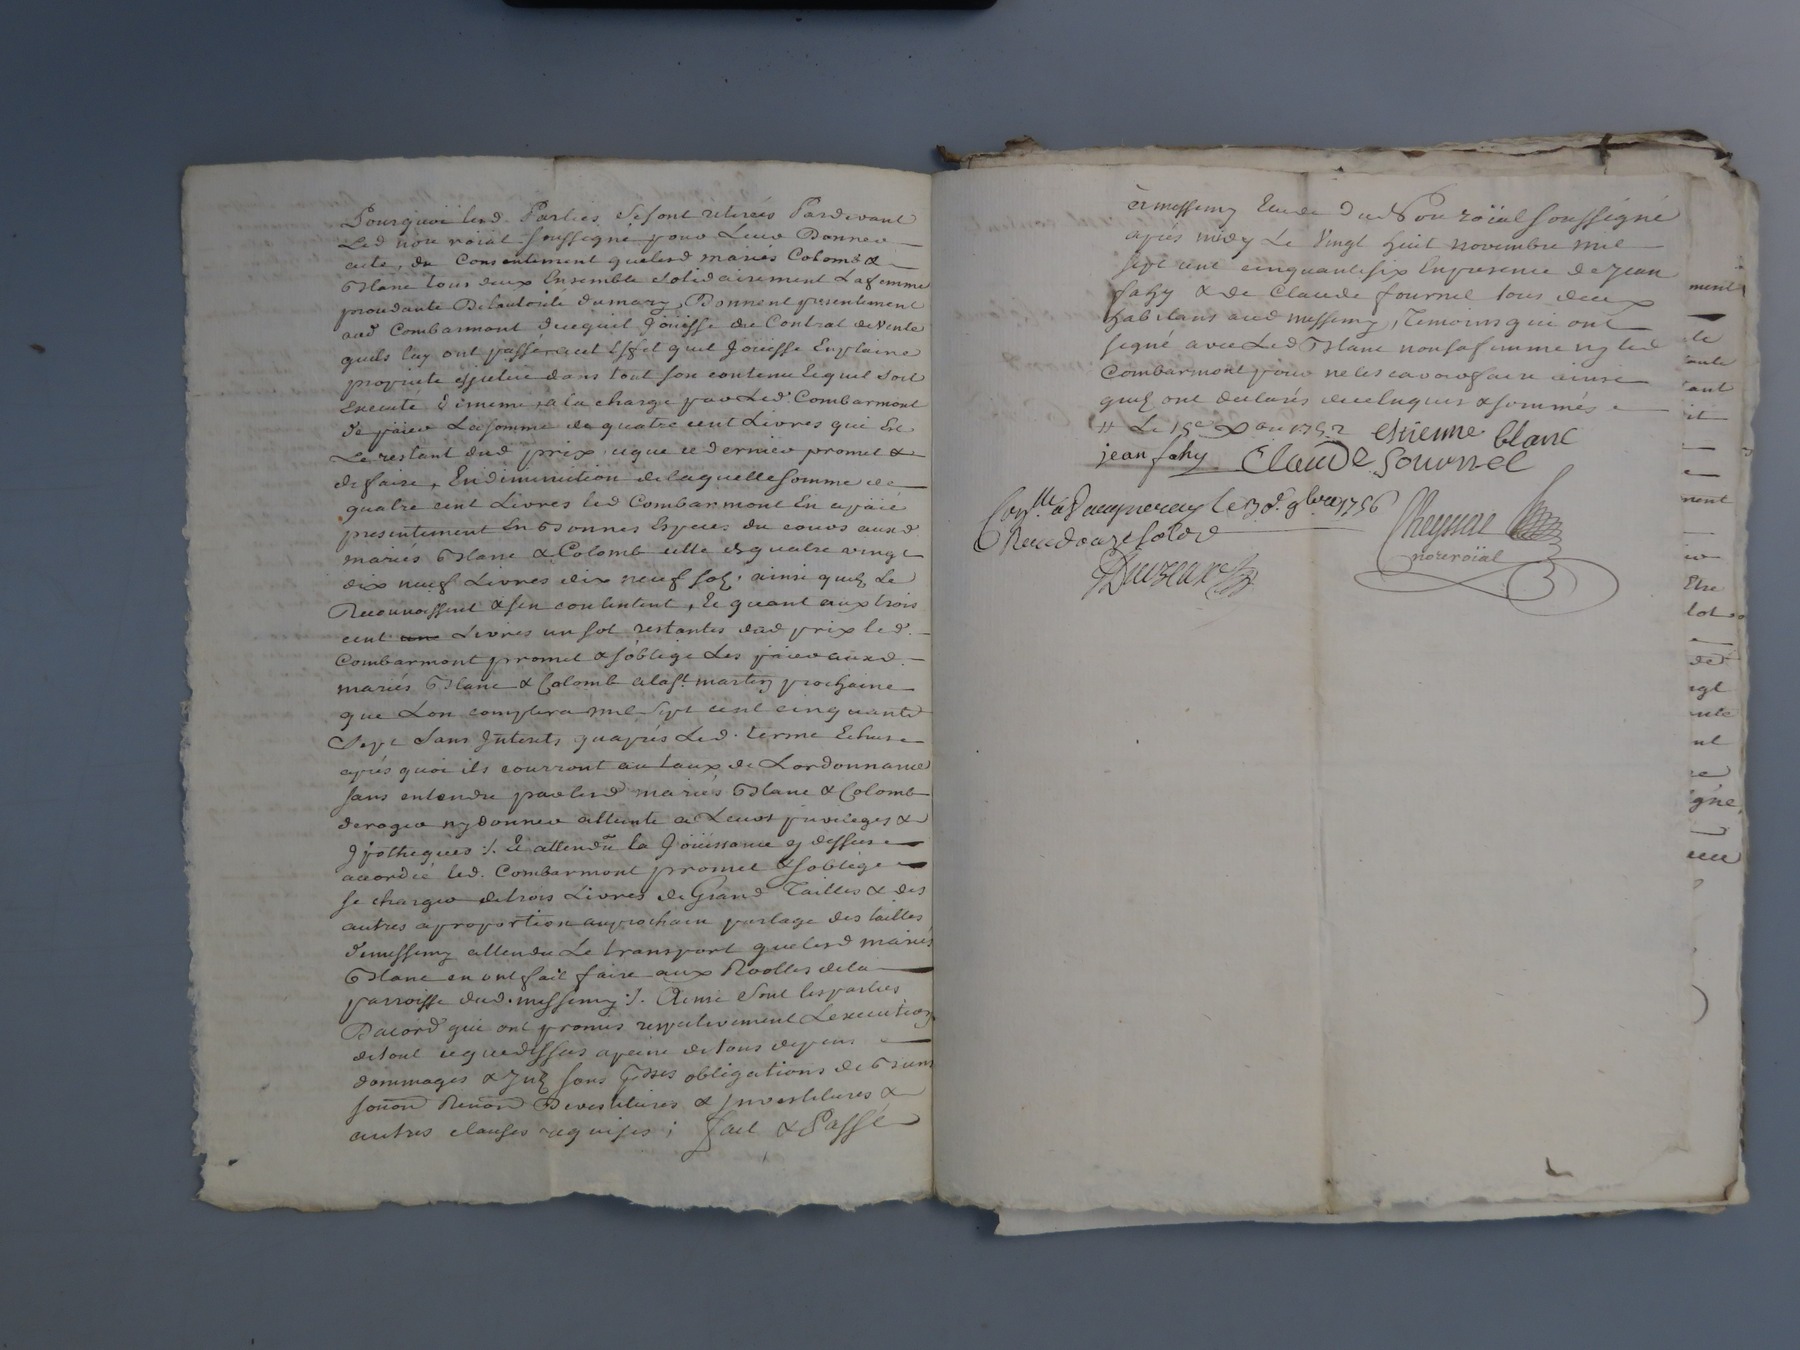 Pourquoi lesd. Parties se sont retirées Pardevant
Led nore roial soussigné pour Leur Donner
acte, du Consentement que lesd mariés Colomb &
Blanc tous deux Ensemble solidairement La femme
procedante De lautorité du mary, Donnent presentement
aud Combarmont decequil Joüisse du Contrat de Vente
quils luy ont passé a cet Effet quil Joüisse En plaine
proprieté dans tout son contenu Lequel soit
Executé à la charge par Led. Combarmont
de païer La somme de quatre cent Livres qui Est
Le restant dud prix, ceque ce dernier promet &
de faire, En diminition de laquelle somme de
quatre cent Livres led Combarmont En a païé
presentement En Bonnes Especes du cours auxd
mariés Blanc & Colomb celle de quatre vingt
dix neuf Livres dix neuf sols. ainsi quils Le
Reconnoissent & sen contentent, Et quant aux trois
cent Livres un sol restantes dud prix led.
Combarmont promet & soblige Les païer auxd.
mariés Blanc & Colomb a la st. martin prochaine
que Lon comptera mil sept cent cinquante
Sept Sans Jnterets quaprés Led. terme Echus
aprés quoi ils courront au taux de Lordonnance
sans entendre par lesd mariés Blanc & Colomb
deroger ny donner atteinte a Leurs privileges &
Jpotheques ./. Et attendu la Joüissance cy dessus
accordée led. Combarmont promet & soblige
se charger de trois Livres de Grand Tailles & des
autres a proportion au prochain partage des tailles
de messimy attendu Le transport que lesd mariés
Blanc en ont fait faire aux Roolles de la
parroisse dud. messimy ./. Ainsi Sont les parties
Dacord qui ont promis respectivement Lexecution
de tout ceque dessus a peine de tous depens
dommages & Jnts sous obligations de Biens
soumon Renon Devestitures & Jnvestitures &
autres clauses requises ; Fait & Passé
à messimy Etude dud Nore roïal soussigné
aprés midy Le Vingt huit novembre mil
sept cent cinquante six En presence de Jean
fahy & de Claude fournel tous deux
habitans aud messimy, Temoins qui ont
signé avec Led Blanc non sa femme ny led
Combarmont pour ne les cavoir faire ainsi
quils ont declarés de ce Enquis & sommés
estienne blanc
jean fahy Claude fournel
Conllé à Vaugneray le 30e. 9bre 1756
Reçu douze sols
nore roïal